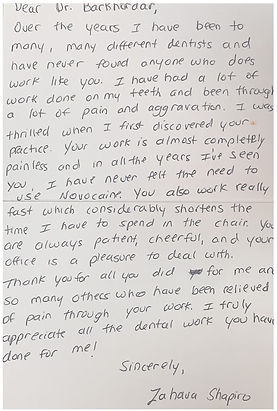 Dear Dr. Barkhordar,
Over the years I have been to
many, many different dentists and
have never found anyone who does
work like you. I have had a lot of
work done on my teeth and been through
a lot of pain and aggravation. I was
thrilled when I first discovered your
practice. Your work is almost completely
painless and in all the years I've seen
you, I have never felt the need to
use Novocaine. You also work really
fast which considerably shortens the
time I have to spend in the chair. You
are always patient, cheerful, and your
office is a pleasure to deal with.
Thank you for all you did for me and
so many others who have been relieved
of pain through your work. I truly
appreciate all the dental work you have
done for me!
Sincerely,
Zahava Shapiro